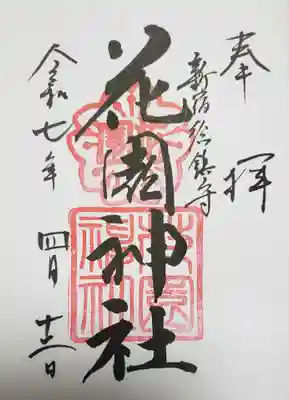 奉拝
新宿総鎮守
花園神社
令和七年四月十二日